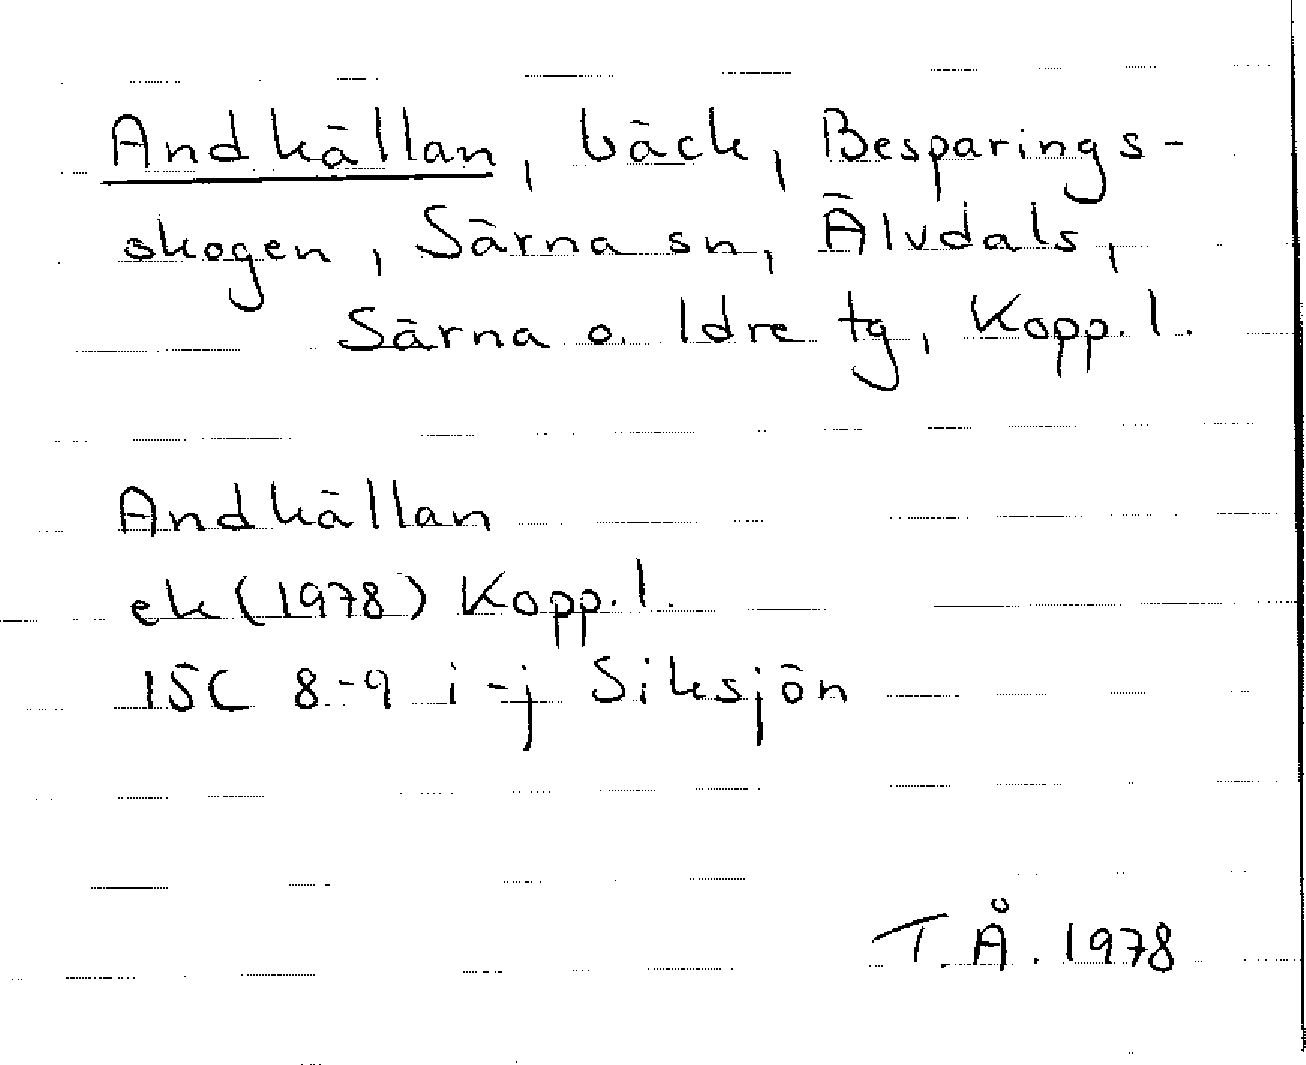 Andkällan, bäck, Besparings-
skogen, Särna sn, Älvdals,
Särna o. Idre tg, Kopp. l.
Andkällan
ek (1978) Kopp. l.
15C 8-9 i-j Siksjön
T.Å. 1978